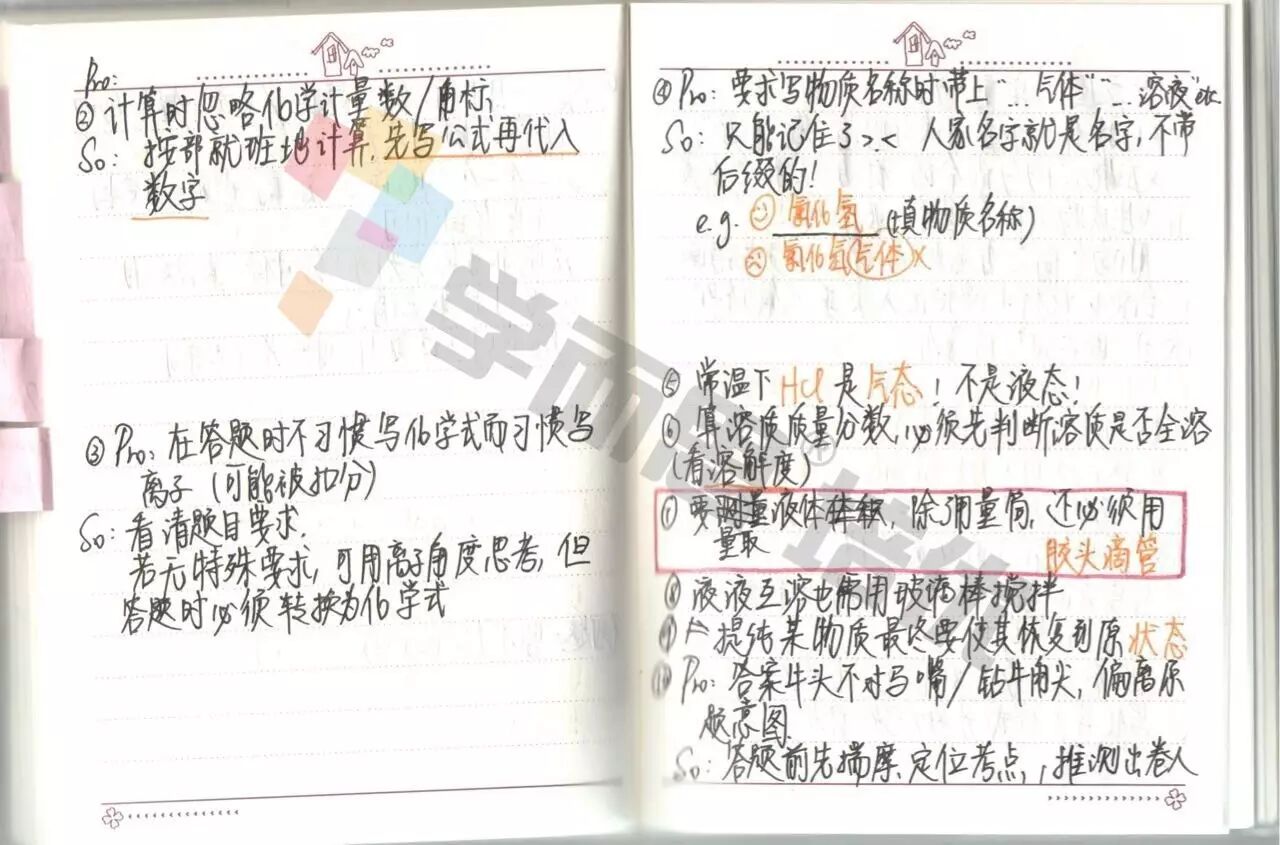 Pro:
② 计算时忽略化学计量数/角标;
So: 按部就班地计算,先写公式再代入
数字
③ Pro: 在答题时不习惯写化学式而习惯写
离子 (可能被扣分)
So: 看清题目要求.
若无特殊要求, 可用离子角度思考, 但
答题时必须转换为化学式
④ Pro: 要求写物质名称时带上"…气体""…溶液"etc.
So: 只能记住了>.< 人家名字就是名字, 不带
后缀的!
e.g. 氯化氢 (填物质名称)
氯化氢气体×
⑤ 常温下 HCl 是气态! 不是液态!
⑥ 算溶质质量分数, 必须先判断溶质是否全溶
(看溶解度)
⑦ 要测量液体体积, 除了量筒, 还必须用
量取
胶头滴管
⑧ 液液互溶也需用玻璃棒搅拌
⑨ 提纯某物质最终要使其恢复到原状态
⑩ Pro: 答案牛头不对马嘴/钻牛角尖, 偏离原
题意图.
So: 答题前先揣摩、定位考点, 推测出卷人
学而思®培优